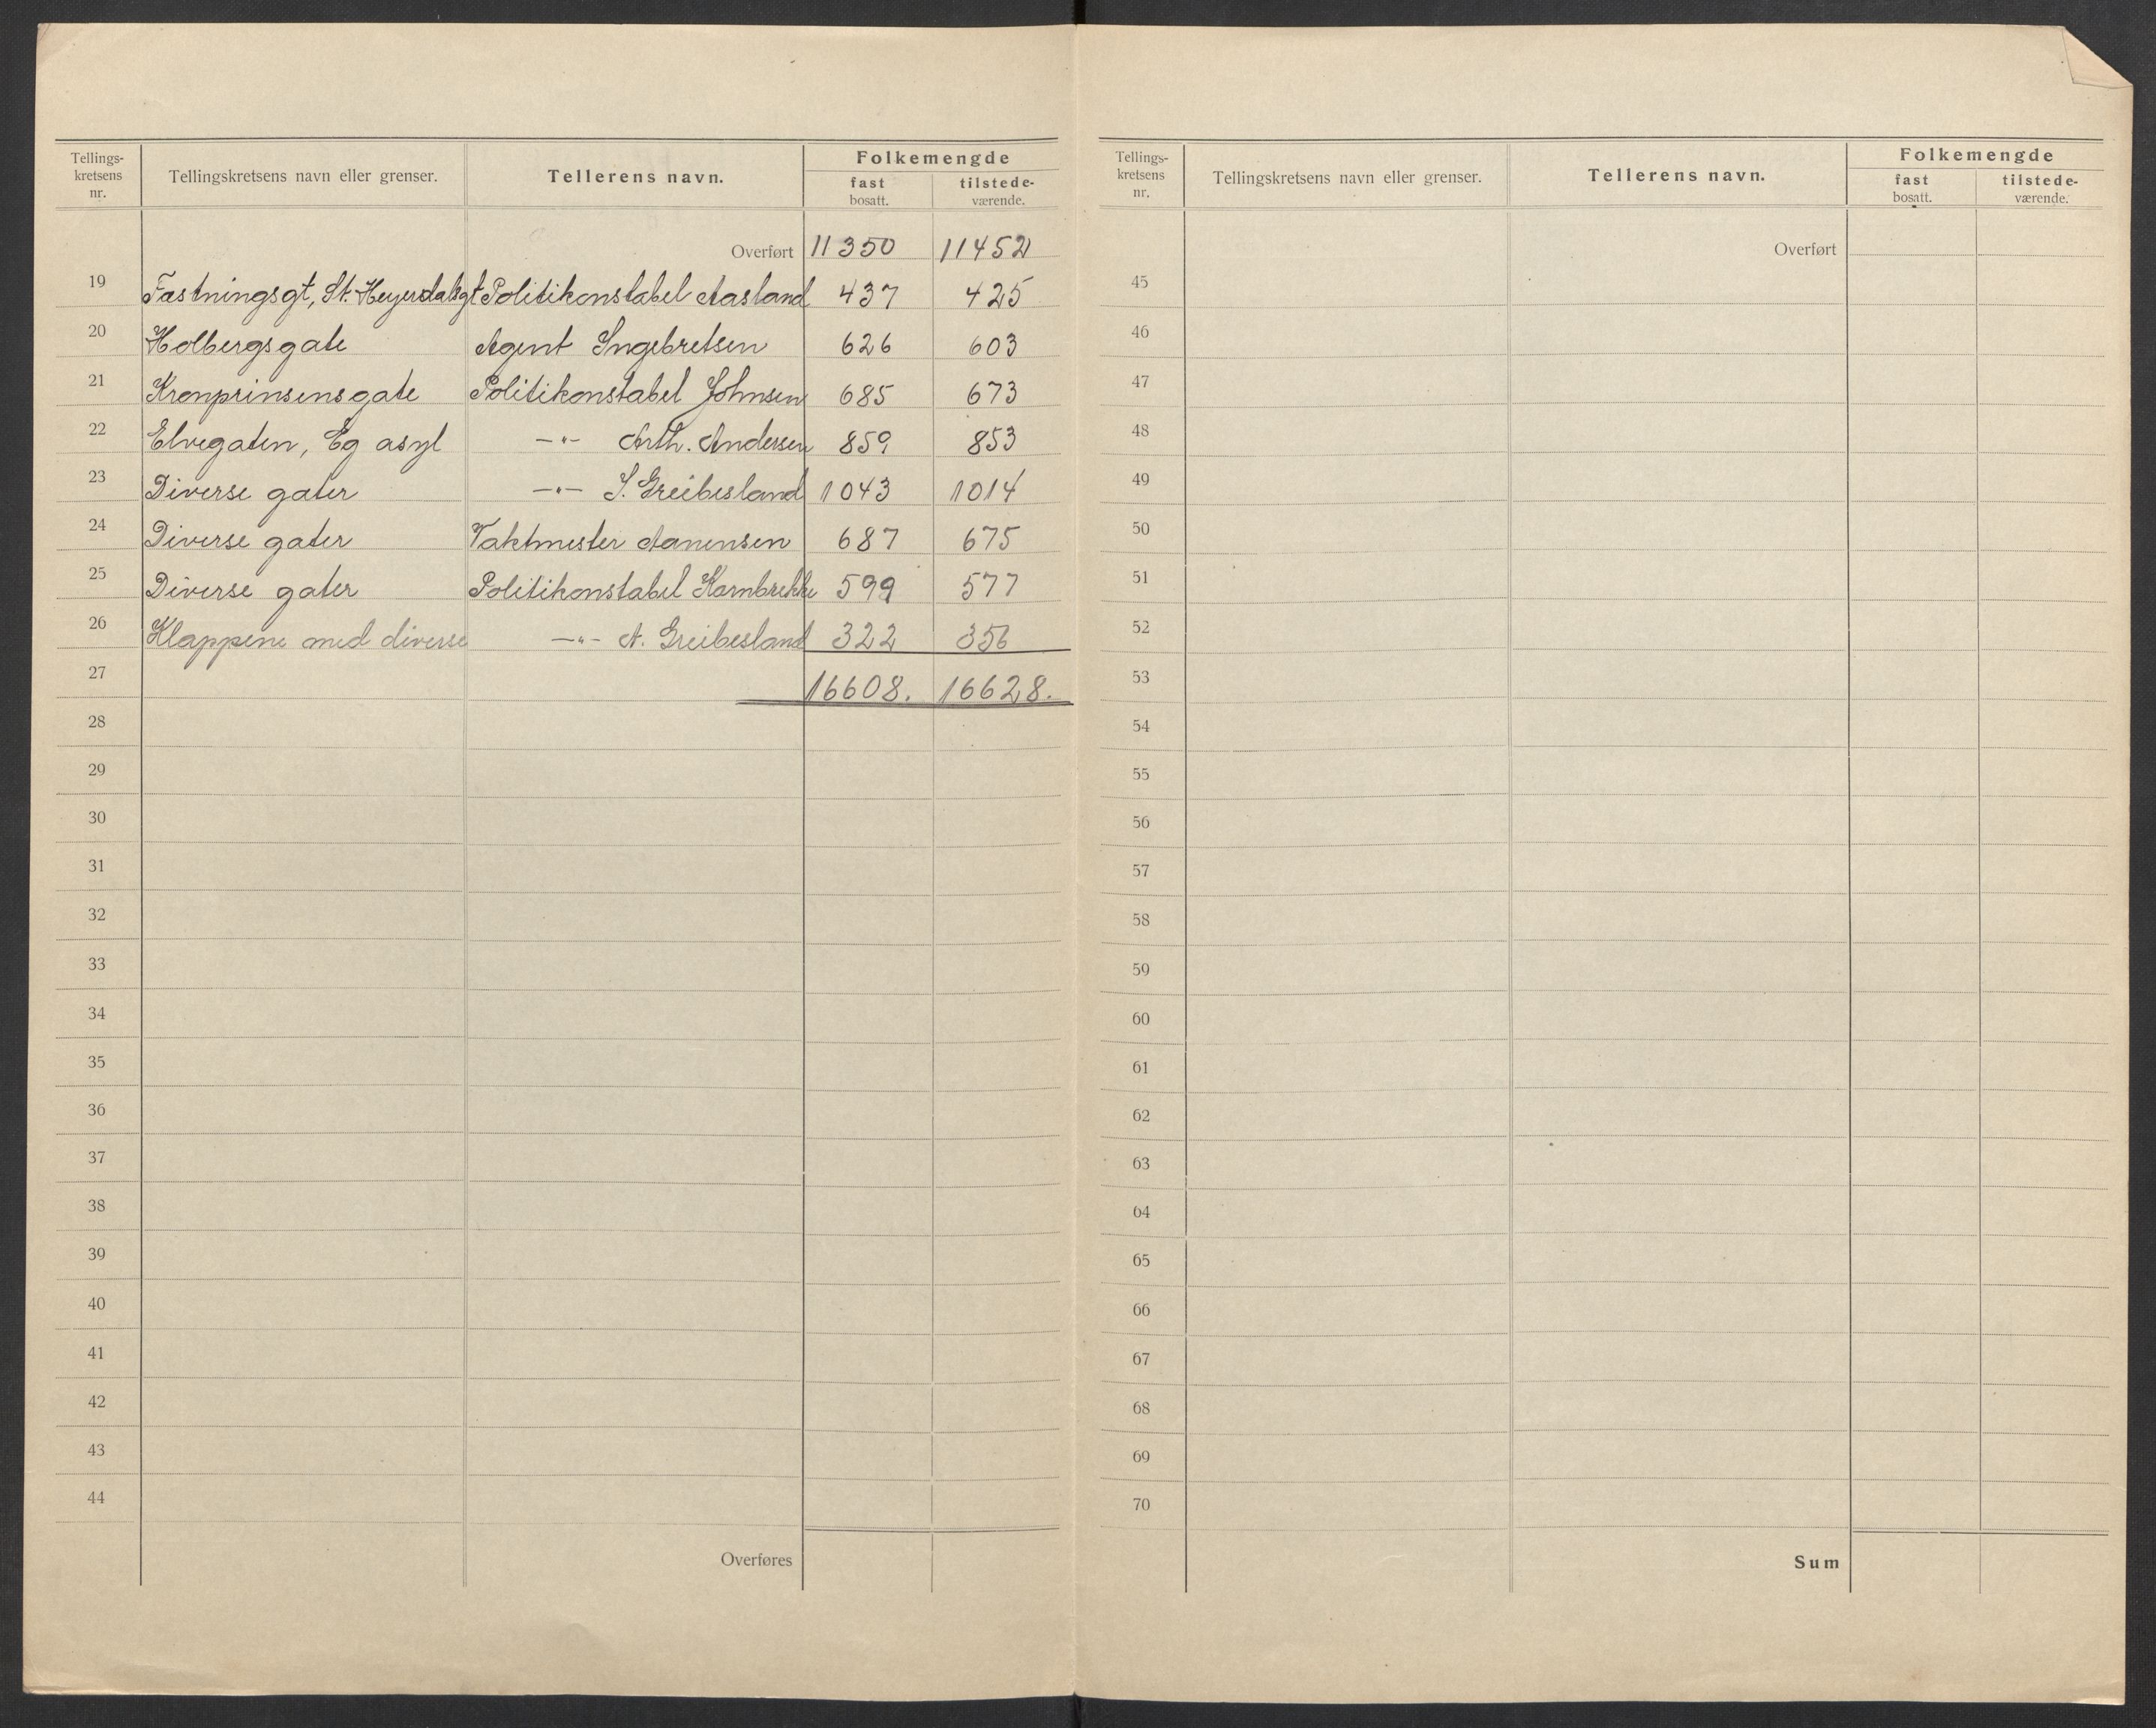 Tellings-kretsens nr. Tellingskretsens navn eller grenser. Tellerens navn. Folkemengde fast bosatt. tilstede-værende.
Overført 11350 11452
19 Fæstningsgt, St. Heyerdalsgt Politikonstabel Aasland 437 425
20 Holbergsgate Agent Ingebretsen 626 603
21 Kronprinsensgate Politikonstabel Johnsen 685 673
22 Elvegaten, Eg asyl -"- Arth. Andersen 859 853
23 Diverse gater -"- S. Greibesland 1043 1014
24 Diverse gater Vaktmester Aanensen 687 675
25 Diverse gater Politikonstabel Kornbrekke 599 577
26 Klappene med diverse -"- A. Greibesland 322 356
27 16608. 16628.
28
29
30
31
32
33
34
35
36
37
38
39
40
41
42
43
44
Overføres
Tellings-kretsens nr. Tellingskretsens navn eller grenser. Tellerens navn. Folkemengde fast bosatt. tilstede-værende.
Overført
45
46
47
48
49
50
51
52
53
54
55
56
57
58
59
60
61
62
63
64
65
66
67
68
69
70
Sum